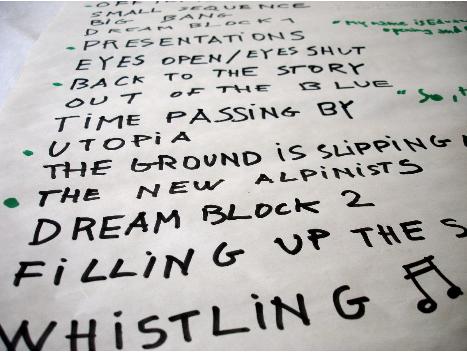 SMALL SEQUENCE
BIG BANG
DREAM BLOCK 1
"My name is
PRESENTATIONS
opening and
EYES OPEN/EYES SHUT
BACK TO THE STORY
OUT OF THE BLUE
"So,
TIME PASSING BY
UTOPIA
THE GROUND IS SLIPPING
THE NEW ALPINISTS
DREAM BLOCK 2
FILLING UP THE S
WHISTLING